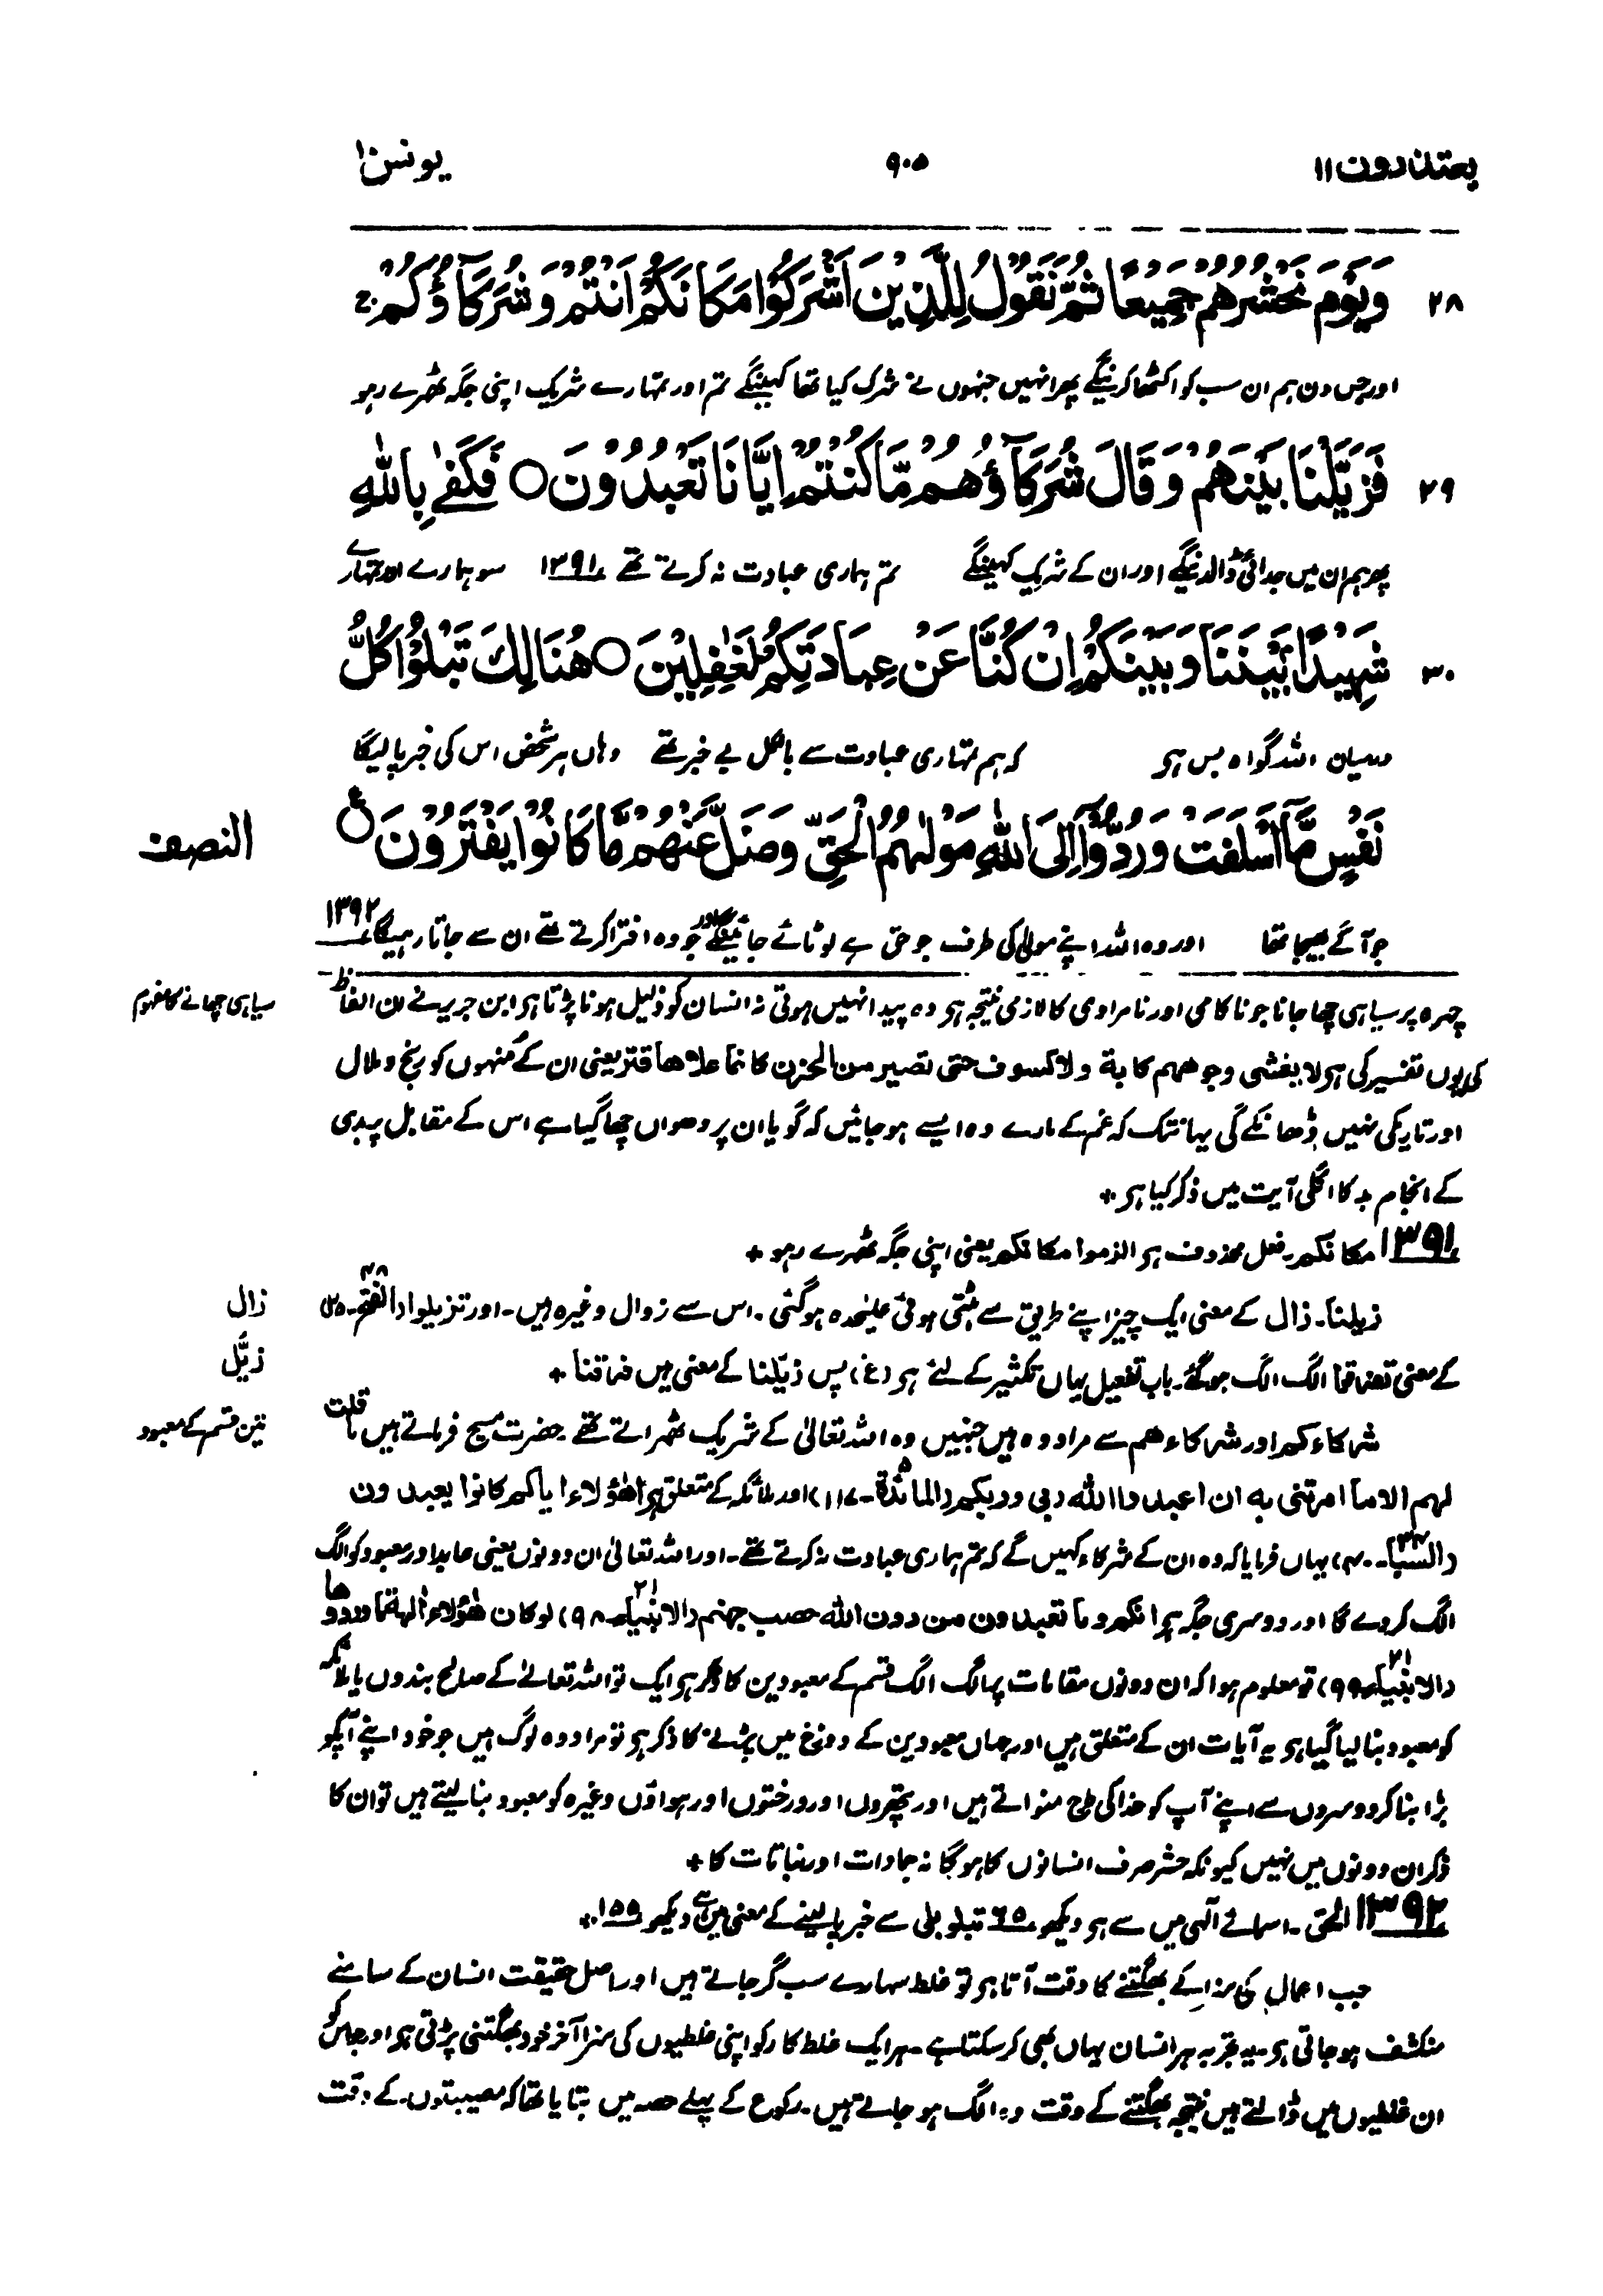 یعتذرون ۱۱
۹۰۵
یونس ۱۰
۲۸ وَيَوْمَ نَحْشُرُهُمْ جَمِيْعًا ثُمَّ نَقُوْلُ لِلَّذِيْنَ اَشْرَكُوْا مَكَانَكُمْ اَنْتُمْ وَشُرَكَآؤُكُمْ ۚ
اور جس دن ہم ان سب کو اکٹھا کرینگے پھر انہیں جنہوں نے شرک کیا تھا کہینگے تم اور تمہارے شریک اپنی جگہ ٹھہرے رہو
۲۹ فَزَيَّلْنَا بَيْنَهُمْ وَقَالَ شُرَكَآؤُهُمْ مَّا كُنْتُمْ اِيَّانَا تَعْبُدُوْنَ ○ فَكَفٰى بِاللّٰهِ
پھر ہم ان میں جدائی ڈالدینگے اور ان کے شریک کہینگے تم ہماری عبادت نہ کرتے تھے ۱۳۹۱ سو ہمارے اور تمہارے
۳۰ شَهِيْدًۢا بَيْنَنَا وَبَيْنَكُمْ اِنْ كُنَّا عَنْ عِبَادَتِكُمْ لَغٰفِلِيْنَ ○ هُنَالِكَ تَبْلُوْا كُلُّ
درمیان اللہ گواہ بس ہو کہ ہم تمہاری عبادت سے بالکل بے خبر تھے وہاں ہر شخص اس کی خبر پا لیگا
نَفْسٍ مَّآ اَسْلَفَتْ وَرُدُّوْٓا اِلَى اللّٰهِ مَوْلٰىهُمُ الْحَقِّ وَضَلَّ عَنْهُمْ مَّا كَانُوْا يَفْتَرُوْنَ ○ ع
النصف
جو آگے بھیجا تھا اور وہ اللہ اپنے مولیٰ کی طرف جو حق ہے لوٹائے جائینگے اور جو وہ افترا کرتے تھے ان سے جاتا رہیگا ۱۳۹۲
چہرہ پر سیاہی چھا جانا جو ناکامی اور نامرادی کا لازمی نتیجہ ہو وہ پیدا نہیں ہوتی نہ انسان کو ذلیل ہونا پڑتا ہو ابن جریر نے ان الفاظ
سیاہی چھانے کا مفہوم
کی یوں تفسیر کی ہو لا یغشی وجوھھم کابۃ ولا کسوف حتی تصیر من الحزن کانما علاھا قتر یعنی ان کے منہوں کو رنج و ملال
اور تاریکی نہیں ڈھانکے گی یہانتک کہ غم کے مارے وہ ایسے ہو جائیں کہ گویا ان پر دھواں چھا گیا ہے اس کے مقابل پر بدی
کے انجام بد کا اگلی آیت میں ذکر کیا ہو +
۱۳۹۱ مکانکم۔ فعل محذوف ہو الزموا مکانکم یعنی اپنی جگہ ٹھہرے رہو +
زیلنا۔ زال کے معنی ایک چیز اپنے طریق سے ہٹتی ہوئی علیٰحدہ ہو گئی۔ اس سے زوال وغیرہ ہیں۔ اور تزیلوا (الفتح ۴۸۔۲۵)
زال
کے معنی تفرقوا الگ الگ ہو گئے۔ باب تفعیل یہاں تکثیر کے لئے ہو (غ) پس زیّلنا کے معنی ہیں فرّقنا +
زیّل
شرکاءکم اور شرکاءھم سے مراد وہ ہیں جنہیں وہ اللہ تعالیٰ کے شریک ٹھہراتے تھے۔ حضرت مسیح فرماتے ہیں ما قلت
تین قسم کے معبود
لہم الا ما امرتنی بہ ان اعبدوا اللہ ربی وربکم (المائدۃ ۵۔۱۱۷) اور ملائکہ کے متعلق ہو اھؤلاء ایاکم کانوا یعبدون
(السبا ۳۴۔۴۰) یہاں فرمایا کہ وہ ان کے شرکاء کہیں گے کہ تم ہماری عبادت نہ کرتے تھے۔ اور اللہ تعالیٰ ان دونوں یعنی عابد اور معبود کو الگ
الگ کر دے گا اور دوسری جگہ ہو انکم وما تعبدون من دون اللہ حصب جہنم (الانبیاء ۲۱۔۹۸) لو کان ھؤلاء اٰلہۃ ما وردوھا
(الانبیاء ۲۱۔۹۹) تو معلوم ہوا کہ ان دونوں مقامات پر الگ الگ قسم کے معبودین کا ذکر ہو ایک تو اللہ تعالےٰ کے صالح بندوں یا ملائکہ
کو معبود بنا لیا گیا ہو یہ آیات ان کے متعلق ہیں اور جہاں معبودین کے دوزخ میں پڑنے کا ذکر ہو تو مراد وہ لوگ ہیں جو خود اپنے آپکو
بڑا بنا کر دوسروں سے اپنے آپ کو خدا کی طرح منواتے ہیں اور پتھروں اور درختوں اور ہواؤں وغیرہ کو معبود بنا لیتے ہیں تو ان کا
ذکر ان دونوں میں نہیں کیونکہ حشر صرف انسانوں کا ہوگا نہ جمادات اور نباتات کا +
۱۳۹۲ الحق۔ اسمائے الٰہی میں سے ہو دیکھو ۶۵ تبلو بلی سے خبر پا لینے کے معنی میں ہے دیکھو ۱۵۵ +
جب اعمال کی سزا کے بھگتنے کا وقت آتا ہو تو غلط سہارے سب گر جاتے ہیں اور اصل حقیقت انسان کے سامنے
منکشف ہو جاتی ہو۔ یہ تجربہ ہر انسان یہاں بھی کر سکتا ہے۔ ہر ایک غلط کار کو اپنی غلطیوں کی سزا آخر خود بھگتنی پڑتی ہو اور جو اس کو
ان غلطیوں میں ڈالتے ہیں نتیجہ بھگتنے کے وقت وہ الگ ہو جاتے ہیں۔ رکوع کے پہلے حصہ میں بتایا تھا کہ مصیبتوں کے وقت